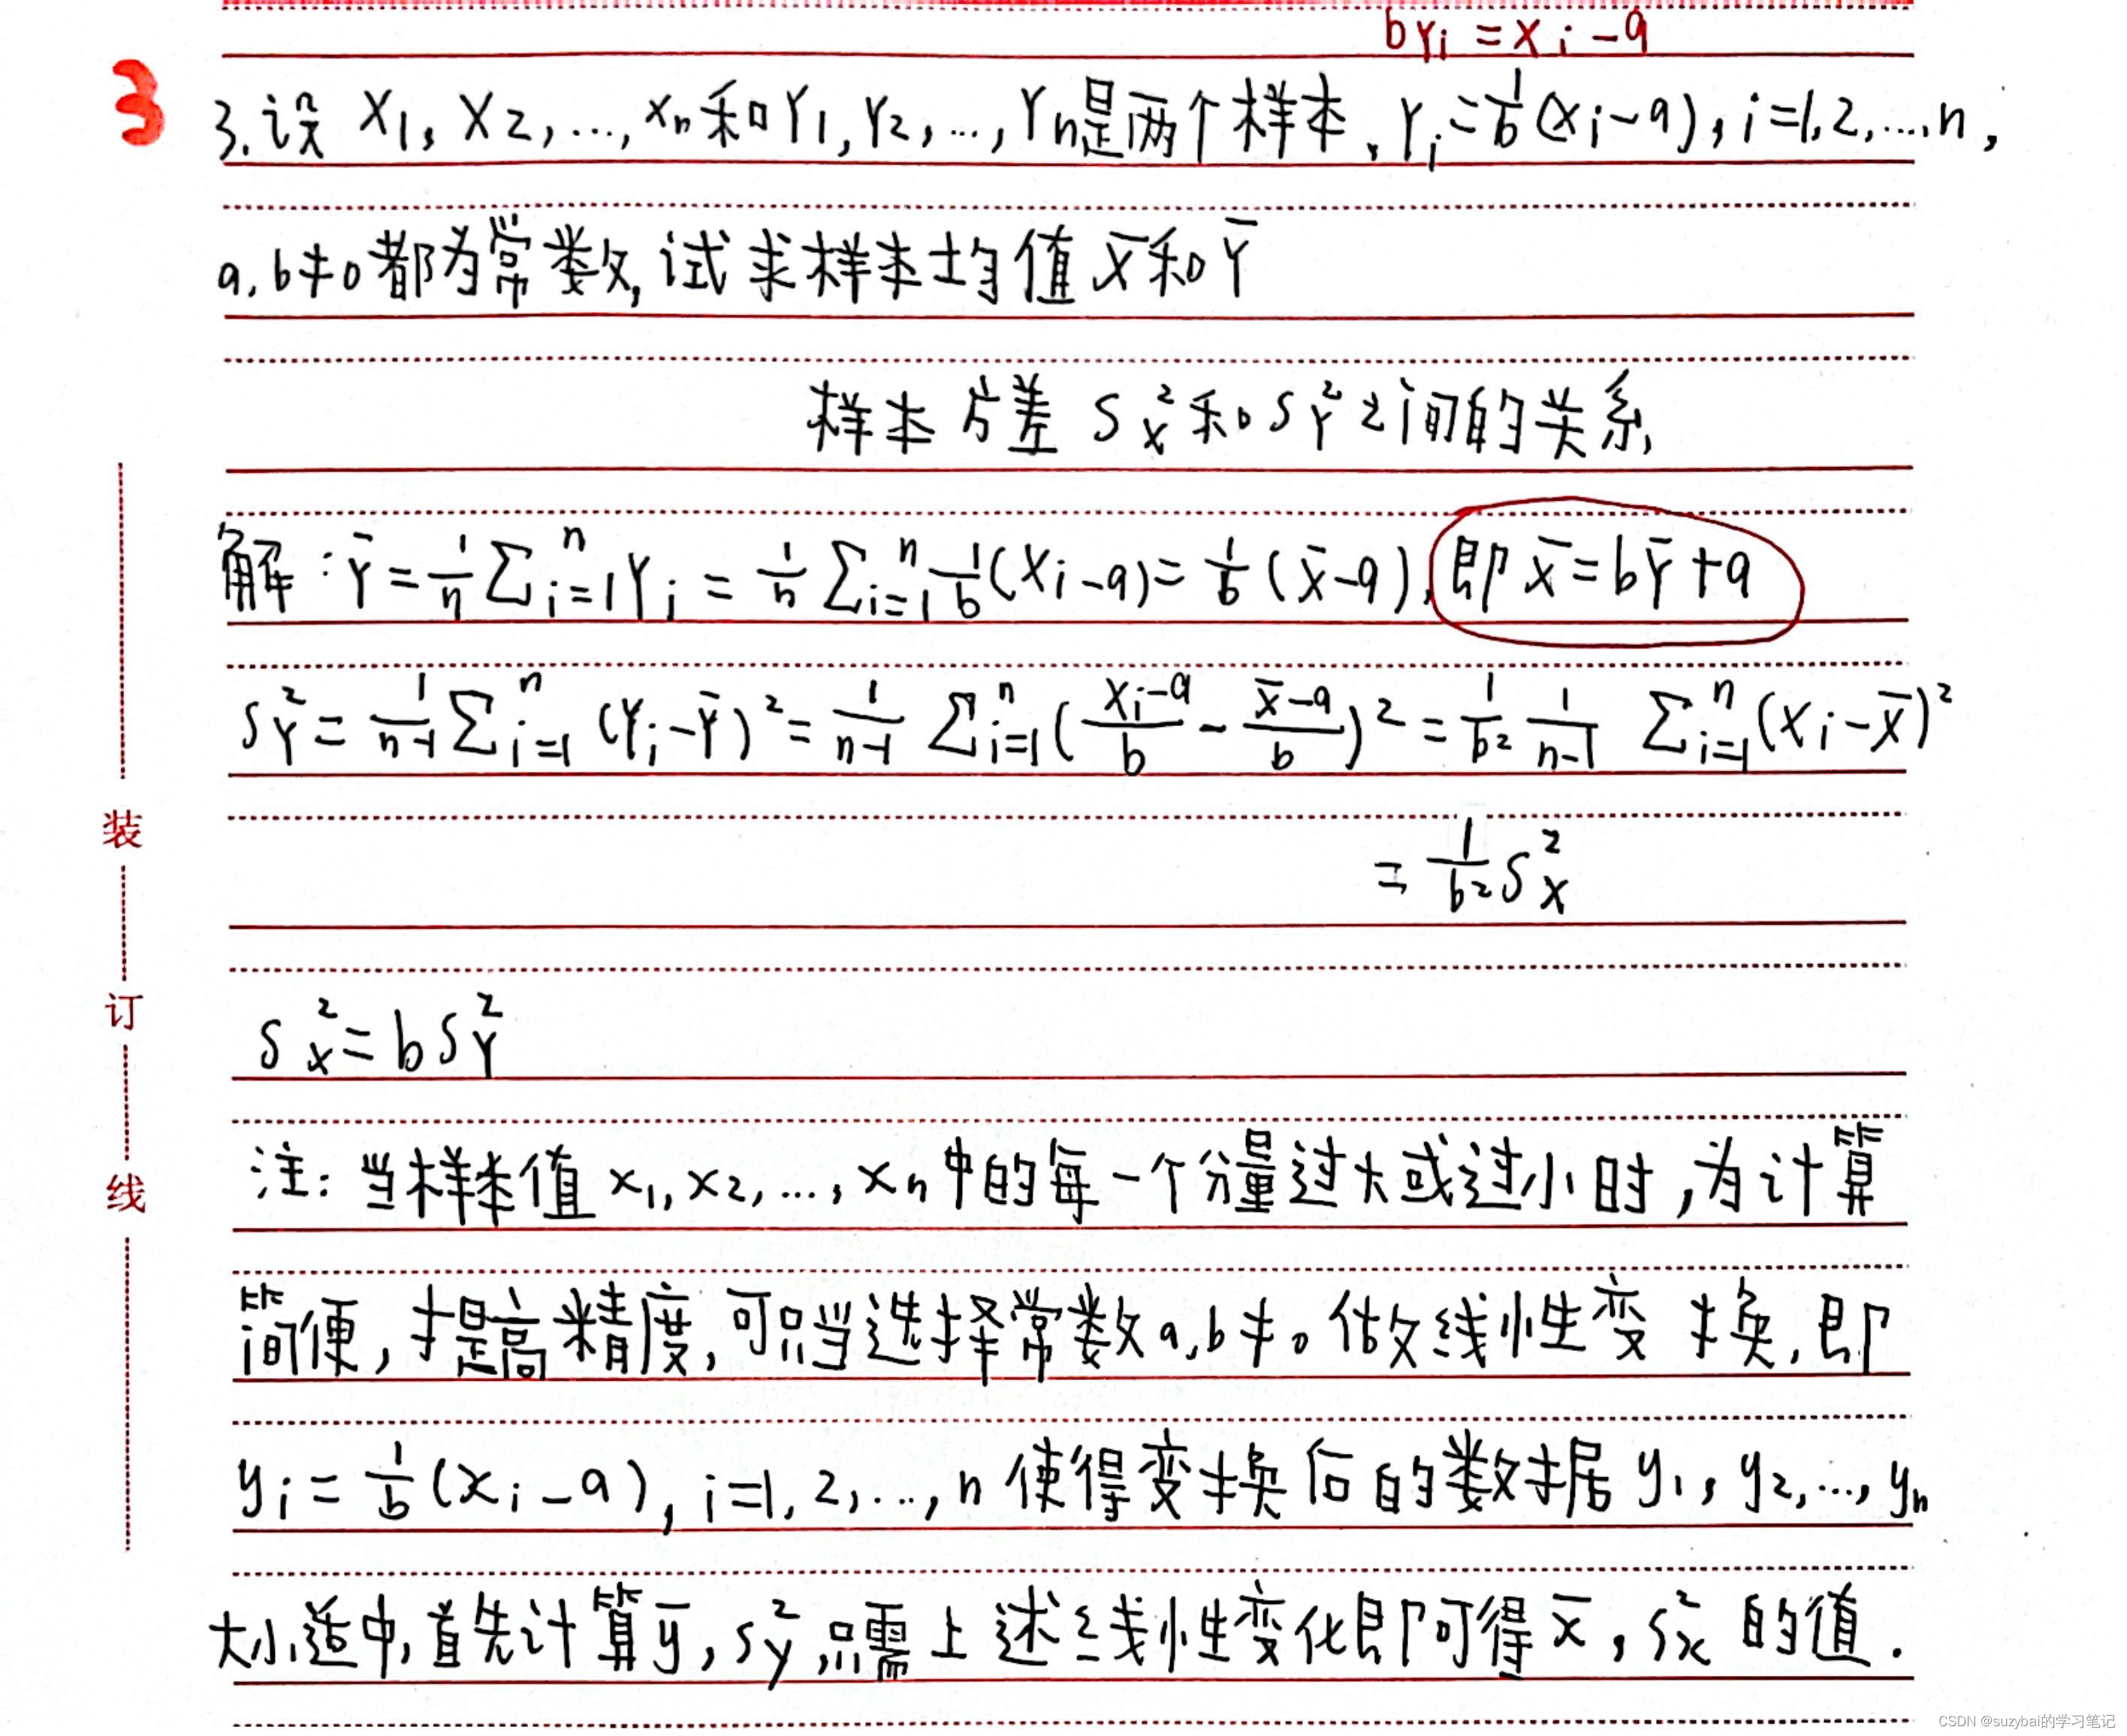 bYi = Xi - a
3
3. 设 X1, X2, ..., Xn 和 Y1, Y2, ..., Yn 是两个样本, Yi = 1/b (Xi - a), i = 1, 2, ..., n,
a, b ≠ 0 都为常数, 试求样本均值 X̄ 和 Ȳ
样本方差 S_X^2 和 S_Y^2 之间的关系
解: Ȳ = 1/n ∑_{i=1}^n Yi = 1/n ∑_{i=1}^n 1/b (Xi - a) = 1/b (X̄ - a), 即 X̄ = bȲ + a
S_Y^2 = 1/(n-1) ∑_{i=1}^n (Yi - Ȳ)^2 = 1/(n-1) ∑_{i=1}^n ((Xi - a)/b - (X̄ - a)/b)^2 = 1/b^2 1/(n-1) ∑_{i=1}^n (Xi - X̄)^2
= 1/b^2 S_X^2
S_X^2 = b S_Y^2
注: 当样本值 x1, x2, ..., xn 中的每一个分量过大或过小时, 为计算
简便, 提高精度, 可只当选择常数 a, b ≠ 0 做线性变换, 即
yi = 1/b (xi - a), i = 1, 2, ..., n 使得变换后的数据 y1, y2, ..., yn
大小适中, 首先计算 ȳ, S_y^2, 只需上述线性变化即可得 x̄, S_x^2 的值.
装
订
线
CSDN @suzybai的学习笔记